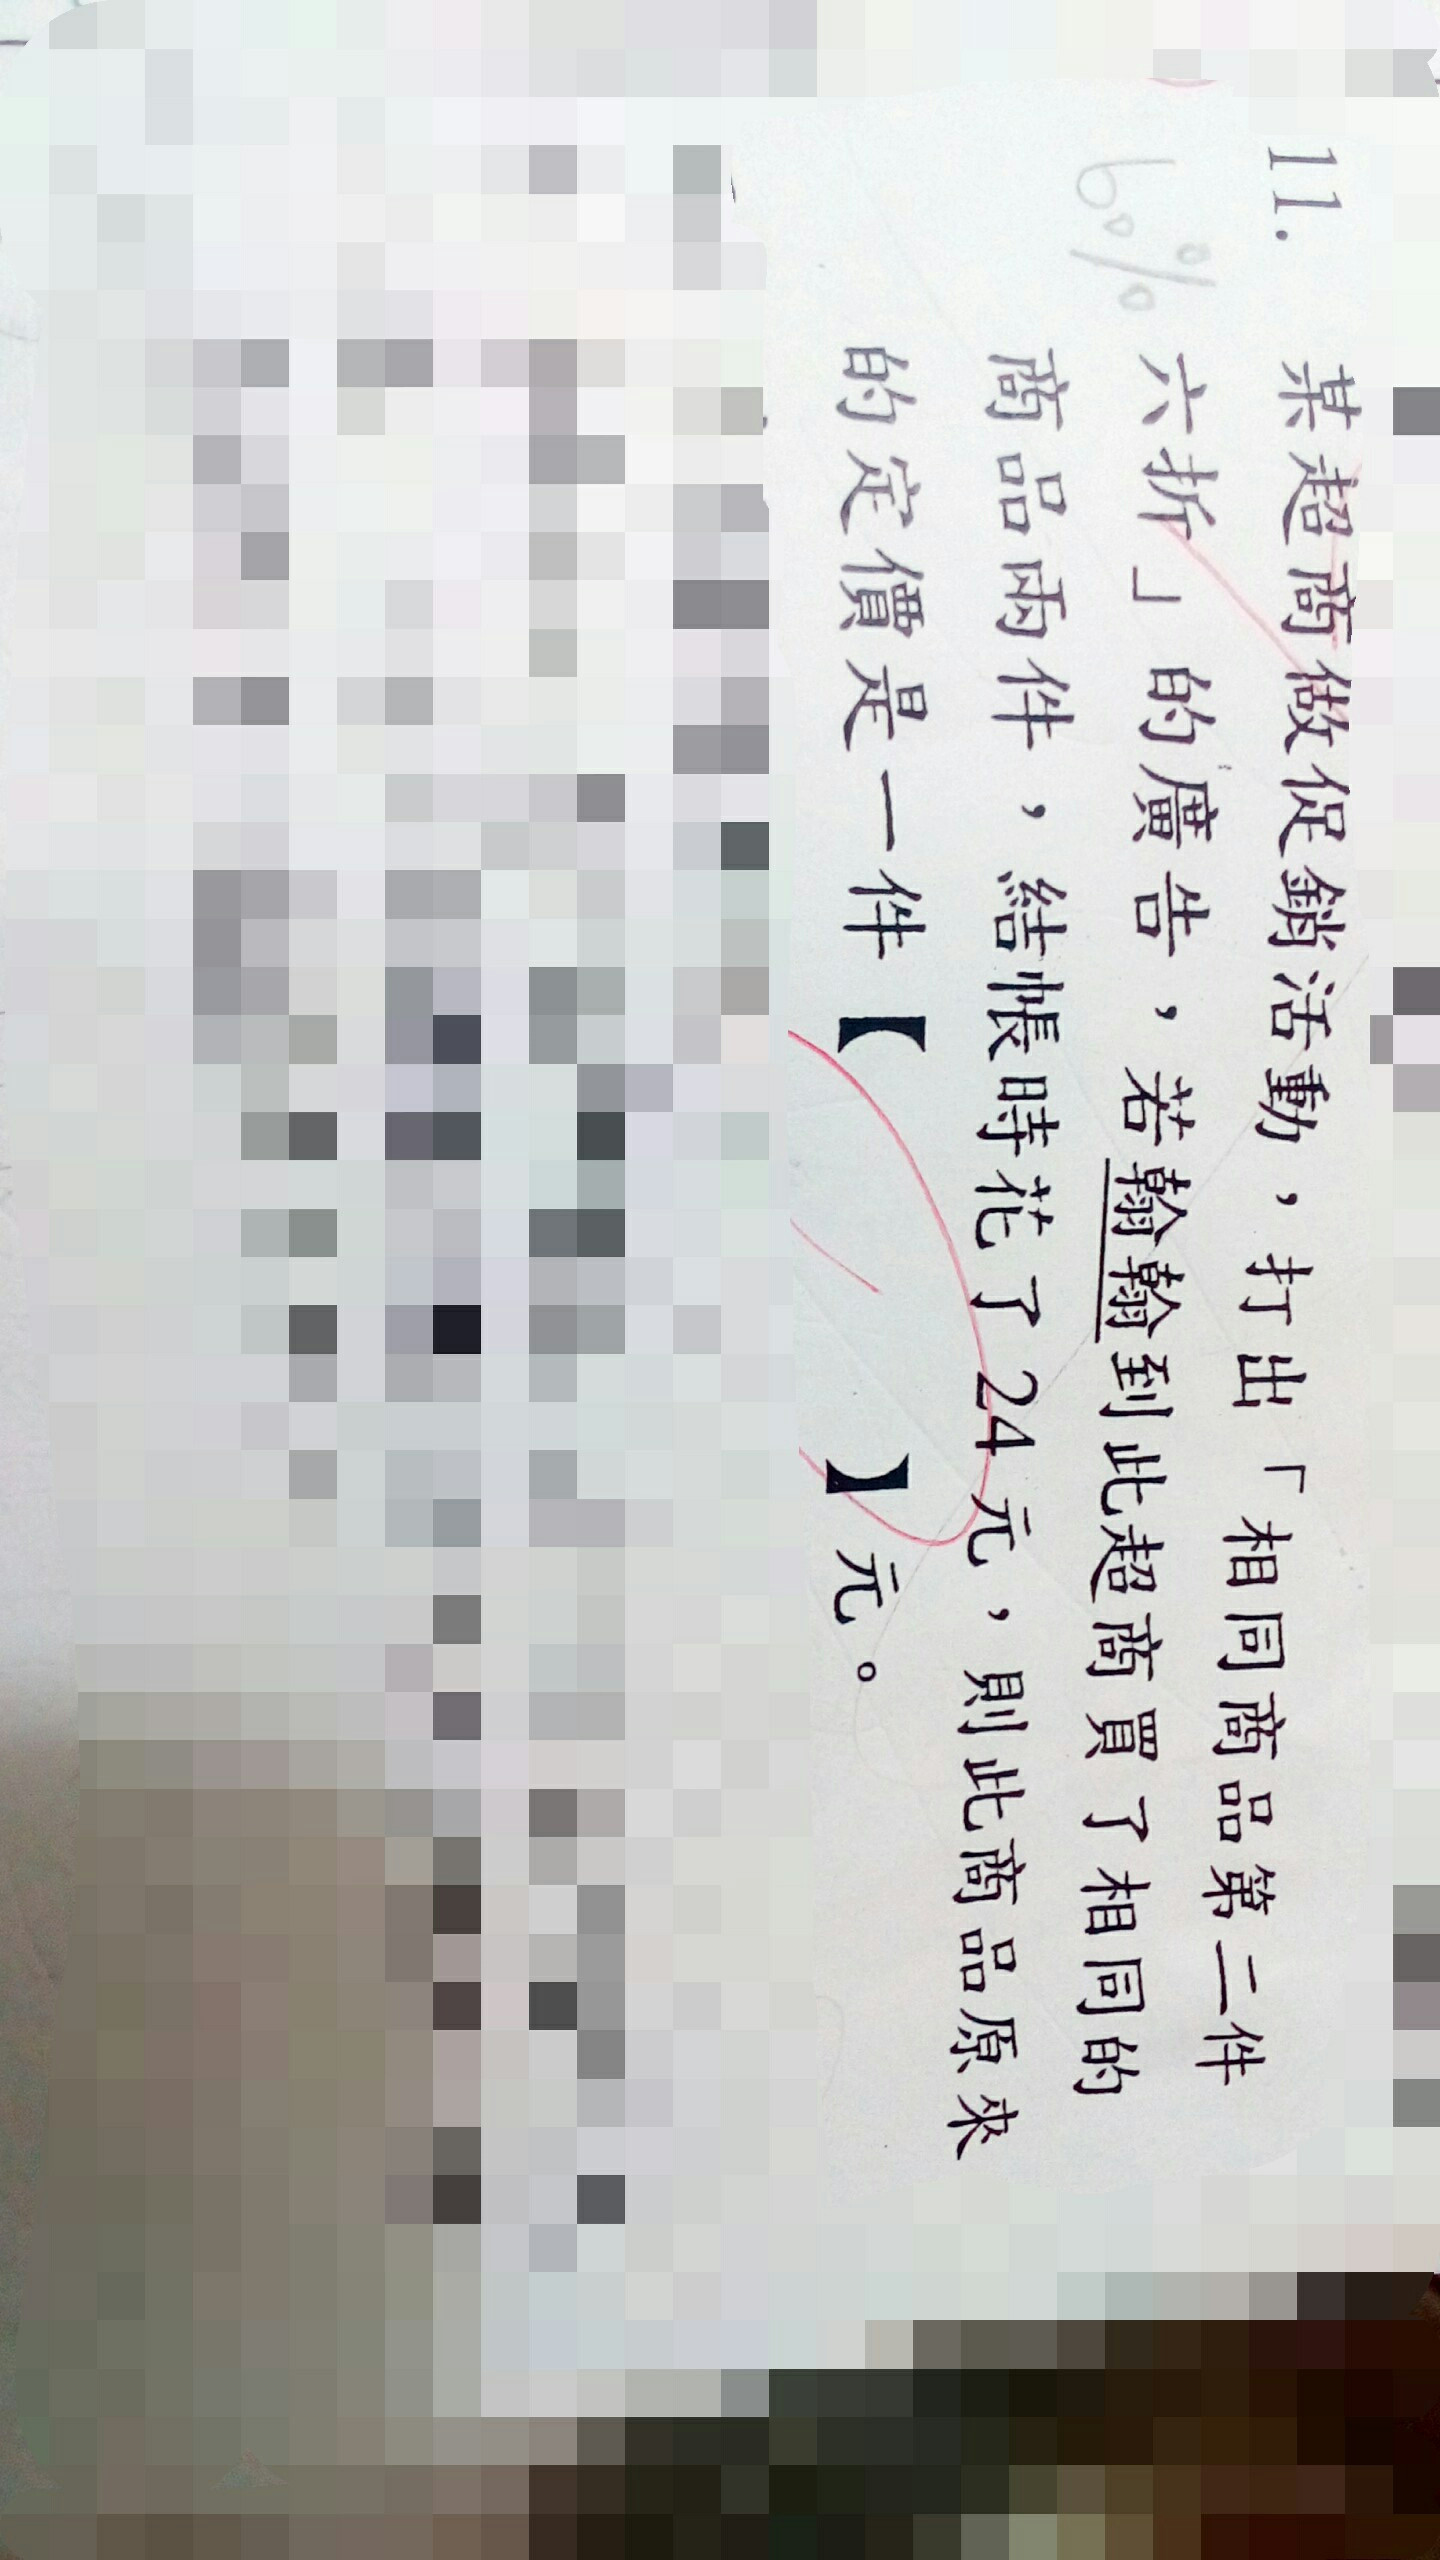 11. 某超商做促銷活動，打出「相同商品第二件
六折」的廣告，若翰翰到此超商買了相同的
商品兩件，結帳時花了24元，則此商品原來
的定價是一件【　　　】元。
60%